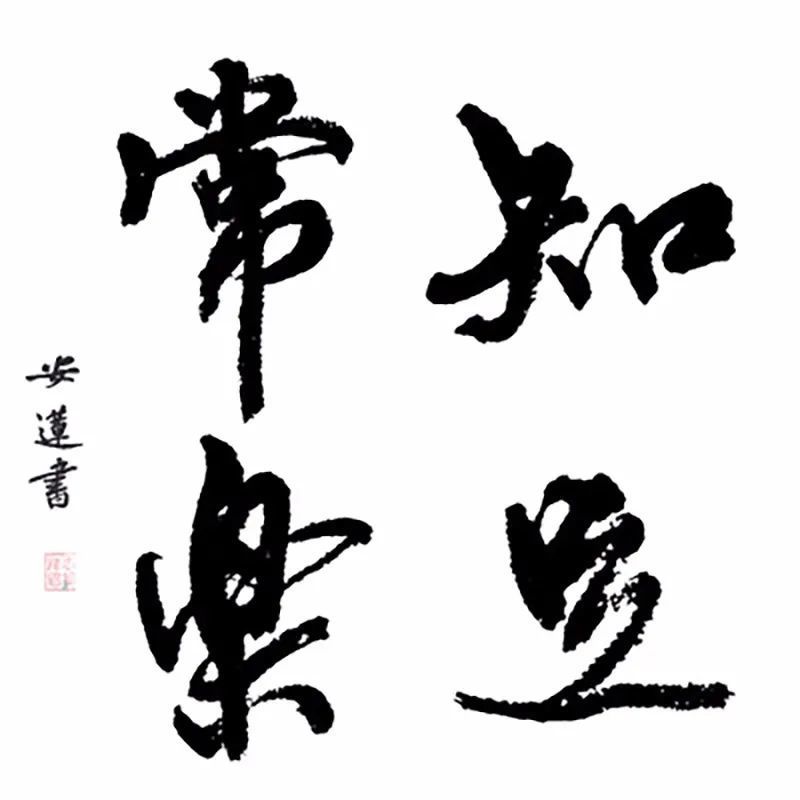 知足
常樂
安蓮書